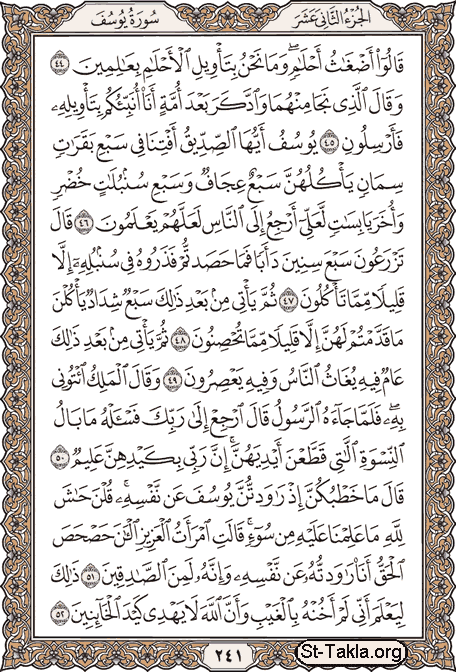 الجزء الثاني عشر
سورة يوسف
قَالُوٓا۟ أَضْغَٰثُ أَحْلَٰمٍ ۖ وَمَا نَحْنُ بِتَأْوِيلِ ٱلْأَحْلَٰمِ بِعَٰلِمِينَ ٤٤
وَقَالَ ٱلَّذِى نَجَا مِنْهُمَا وَٱدَّكَرَ بَعْدَ أُمَّةٍ أَنَا۠ أُنَبِّئُكُم بِتَأْوِيلِهِۦ
فَأَرْسِلُونِ ٤٥ يُوسُفُ أَيُّهَا ٱلصِّدِّيقُ أَفْتِنَا فِى سَبْعِ بَقَرَٰتٍ
سِمَانٍ يَأْكُلُهُنَّ سَبْعٌ عِجَافٌ وَسَبْعِ سُنۢبُلَٰتٍ خُضْرٍ
وَأُخَرَ يَابِسَٰتٍ لَّعَلِّىٓ أَرْجِعُ إِلَى ٱلنَّاسِ لَعَلَّهُمْ يَعْلَمُونَ ٤٦ قَالَ
تَزْرَعُونَ سَبْعَ سِنِينَ دَأَبًا فَمَا حَصَدتُّمْ فَذَرُوهُ فِى سُنۢبُلِهِۦٓ إِلَّا
قَلِيلًا مِّمَّا تَأْكُلُونَ ٤٧ ثُمَّ يَأْتِى مِنۢ بَعْدِ ذَٰلِكَ سَبْعٌ شِدَادٌ يَأْكُلْنَ
مَا قَدَّمْتُمْ لَهُنَّ إِلَّا قَلِيلًا مِّمَّا تُحْصِنُونَ ٤٨ ثُمَّ يَأْتِى مِنۢ بَعْدِ ذَٰلِكَ
عَامٌ فِيهِ يُغَاثُ ٱلنَّاسُ وَفِيهِ يَعْصِرُونَ ٤٩ وَقَالَ ٱلْمَلِكُ ٱئْتُونِى
بِهِۦ ۖ فَلَمَّا جَآءَهُ ٱلرَّسُولُ قَالَ ٱرْجِعْ إِلَىٰ رَبِّكَ فَسْـَٔلْهُ مَا بَالُ
ٱلنِّسْوَةِ ٱلَّٰتِى قَطَّعْنَ أَيْدِيَهُنَّ ۚ إِنَّ رَبِّى بِكَيْدِهِنَّ عَلِيمٌ ٥٠
قَالَ مَا خَطْبُكُنَّ إِذْ رَٰوَدتُّنَّ يُوسُفَ عَن نَّفْسِهِۦ ۚ قُلْنَ حَٰشَ
لِلَّهِ مَا عَلِمْنَا عَلَيْهِ مِن سُوٓءٍ ۚ قَالَتِ ٱمْرَأَتُ ٱلْعَزِيزِ ٱلْـَٰٔنَ حَصْحَصَ
ٱلْحَقُّ أَنَا۠ رَٰوَدتُّهُۥ عَن نَّفْسِهِۦ وَإِنَّهُۥ لَمِنَ ٱلصَّٰدِقِينَ ٥١ ذَٰلِكَ
لِيَعْلَمَ أَنِّى لَمْ أَخُنْهُ بِٱلْغَيْبِ وَأَنَّ ٱللَّهَ لَا يَهْدِى كَيْدَ ٱلْخَآئِنِينَ ٥٢
٢٤١
St-Takla.org